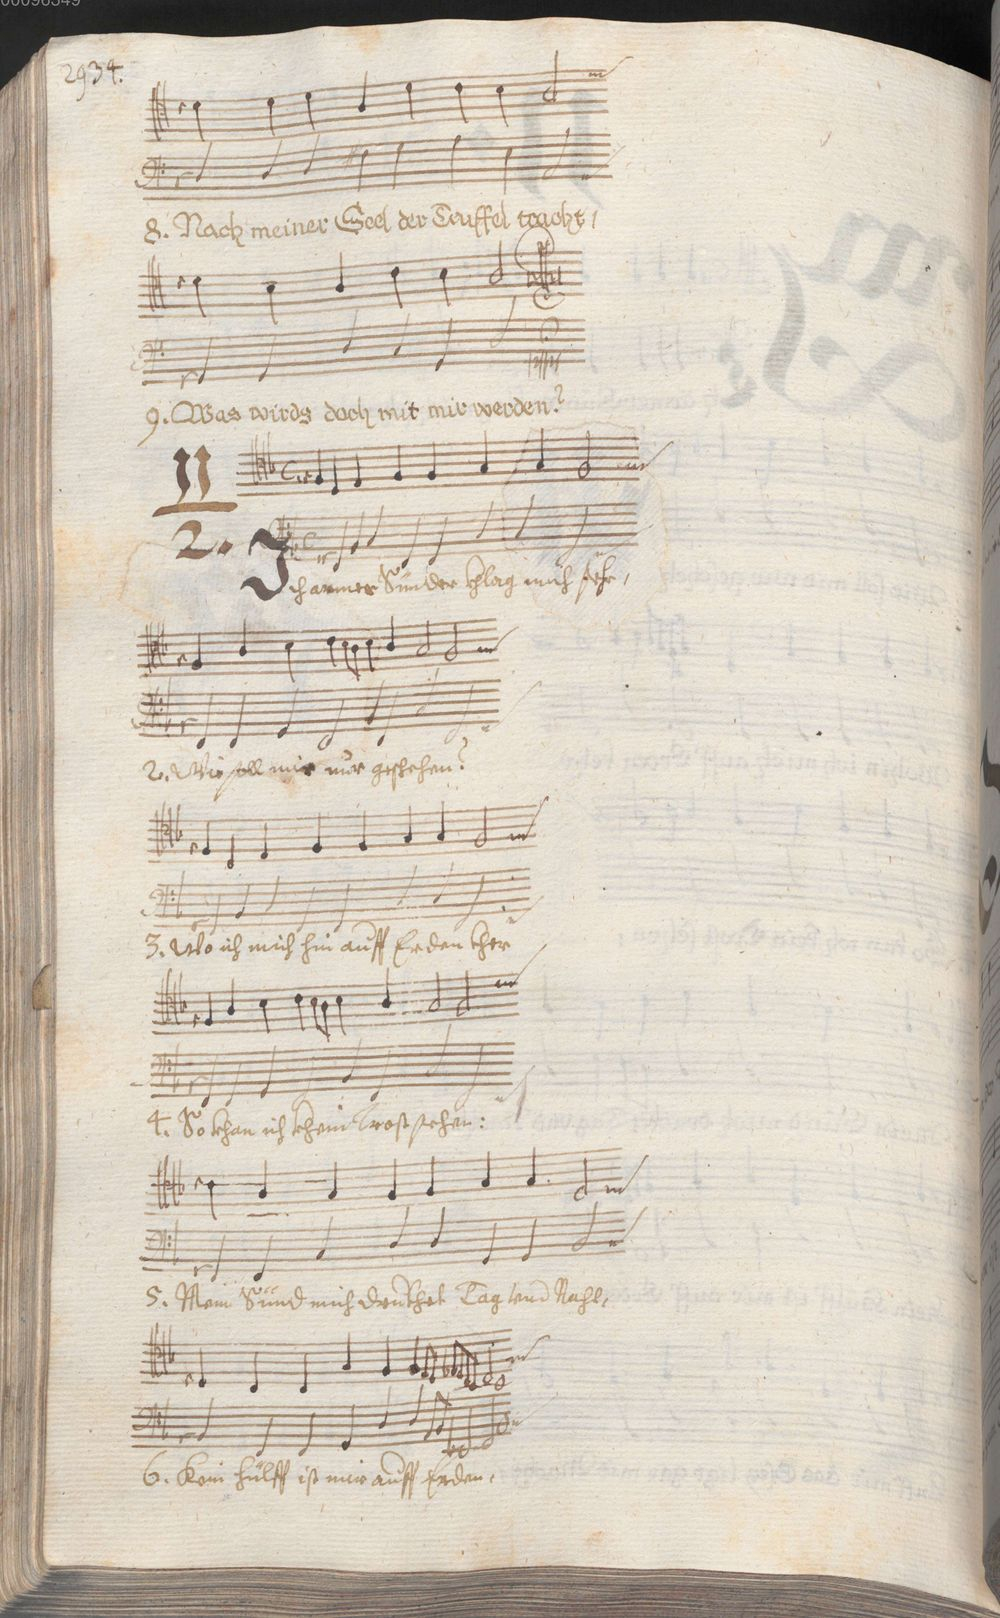 00098349
2934.
8. Nach meiner Seel der Teuffel tracht,
9. Was wirds doch mit mir werden?
11
2. Ich armer Sünder khlag mich sehr,
2. Wie soll mir nur geschehen?
3. Wo ich mich hin auff Erden kher
4. So khan ich khein Trost sehen:
5. Mein Sünd mich drukhet Tag und Nacht,
6. Kein hülff ist mir auff Erden,